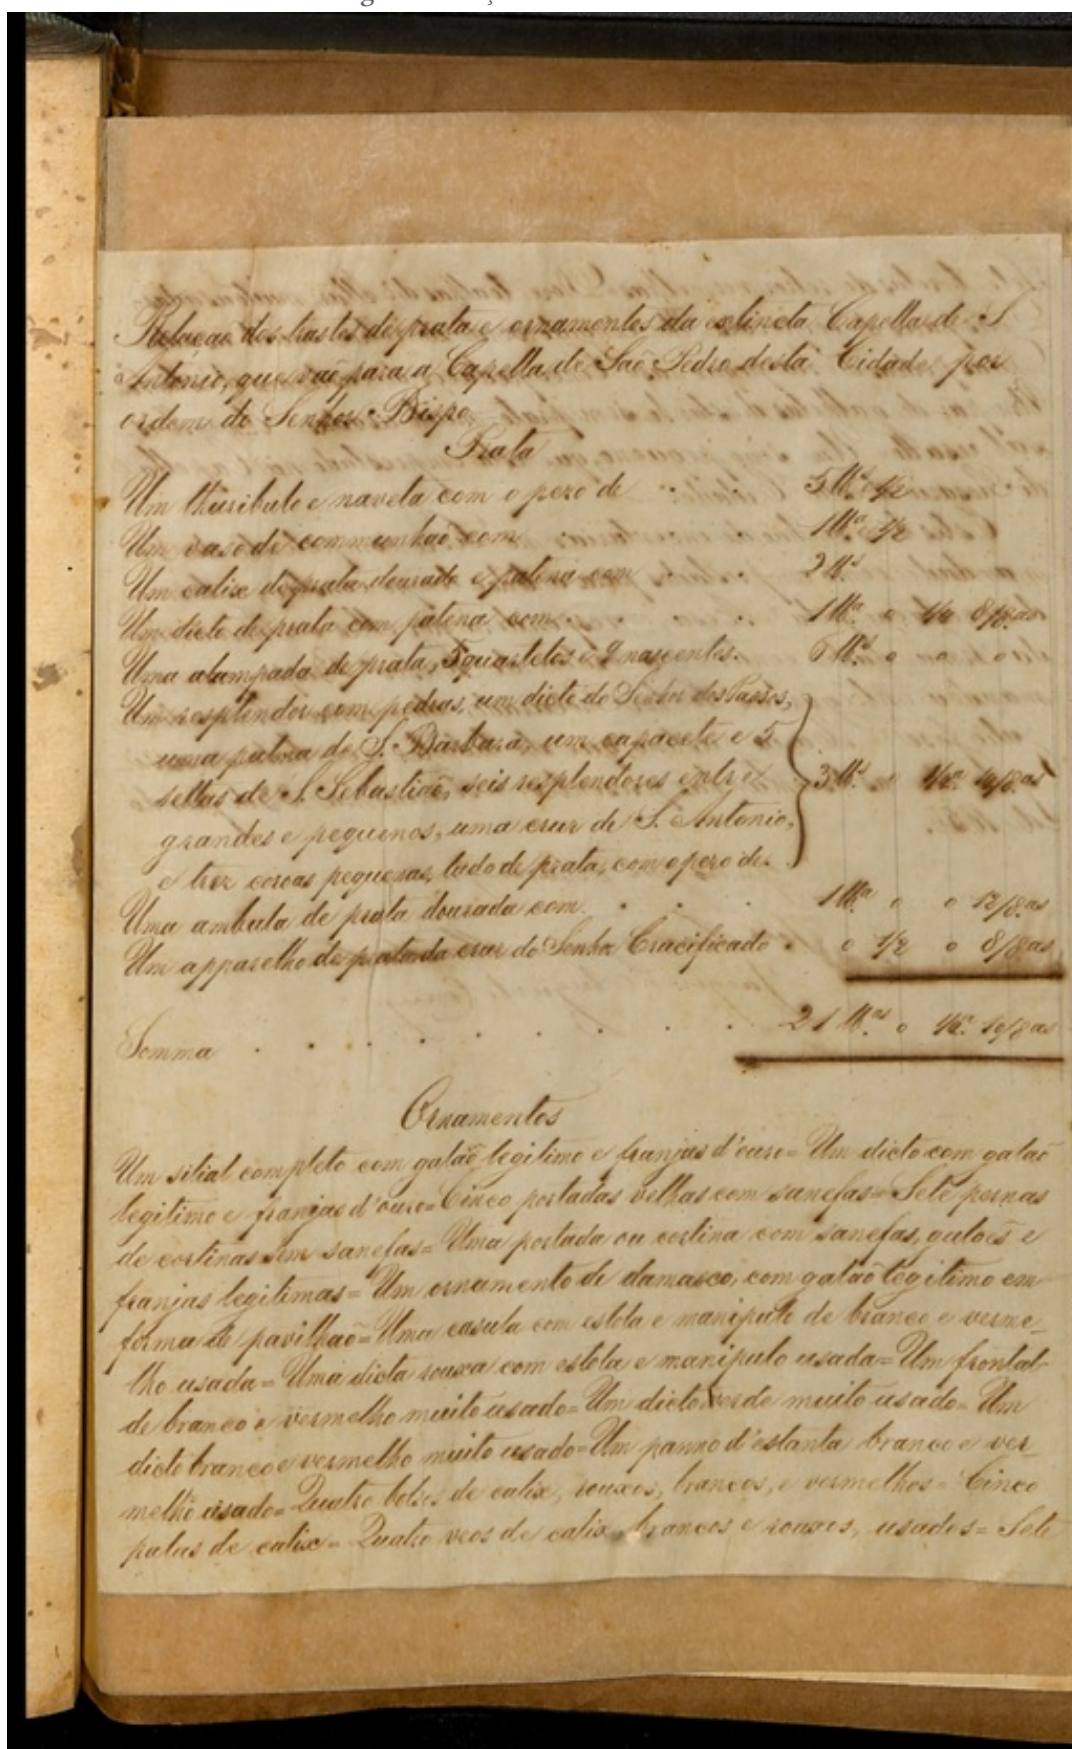 Relação dos trastes de prata e ornamentos da extincta Capella de S
Antonio, que vão para a Capella de São Pedro desta Cidade por
ordem do Senhor Bispo.
Prata
Um thuribulo e naveta com o pezo de 5 M.es 1/2
Um vaso de communhão com 1 M.co 1/2
Um calix de prata dourado e patena com 2 M.es
Um dicto de prata com patena com 1 M.co " 1/4 8/8.as
Uma alampada de prata, 5 quartelos e 2 nascentes. 6 M.es " " "
Um resplendor com pedras, um dicto do Senhor dos Passos,
uma palma de S. Barbara, um capacete e 5
settas de S. Sebastião, seis resplendores entre 3 M.es " 1/4
grandes e pequenos, uma cruz de S. Antonio,
e trez coroas pequenas, tudo de prata, com o pezo de.
Uma ambula de prata dourada com 1 M.co " " 12/8.as
Um apparelho de prata da cruz do Senhor Crucificado " 1/2 " 8/8.as
Somma 21 M.os "
Ornamentos
Um sitial completo com galão legitimo e franjas d'ouro= Um dicto com galão
legitimo e franjas d'ouro= Cinco portadas velhas com sanefas= Sete pernas
de cortinas sem sanefas= Uma portada ou cortina com sanefas, galões e
franjas legitimas= Um ornamento de damasco, com galão legitimo em
forma de pavilhão= Uma casula com estola e manipulo de branco e verme-
lho usada= Uma dicta rouxa com estola e manipulo usada= Um frontal
de branco e vermelho muito usado= Um dicto verde muito usado= Um
dicto branco e vermelho muito usado= Um panno d'estanta branco e ver-
melho usado= Quatro bolsas de calix, rouxos, brancos, e vermelhos= Cinco
palas de calix= Quatro veos de calix brancos e rouxos, usados= Sete